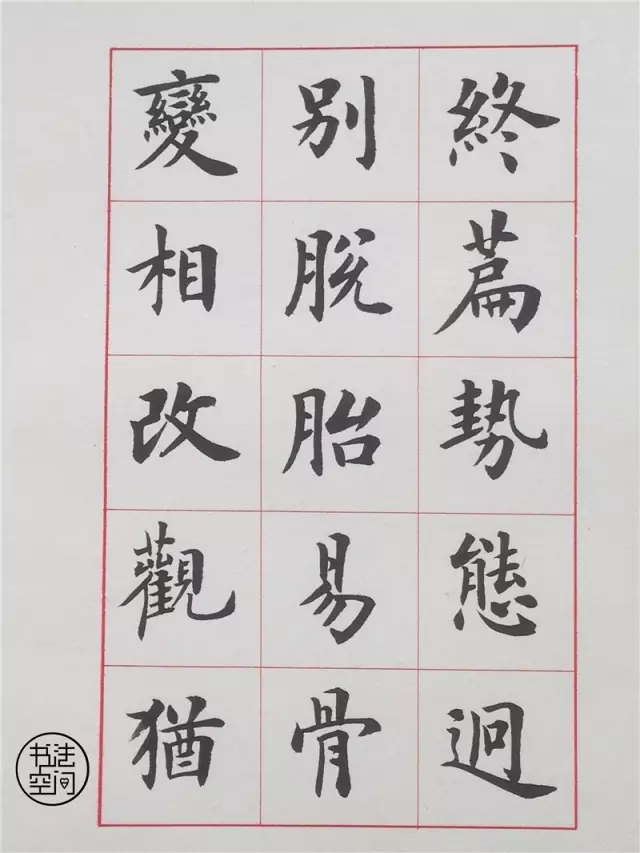 終篇勢態迥
別脫胎易骨
變相改觀猶
书法
空间